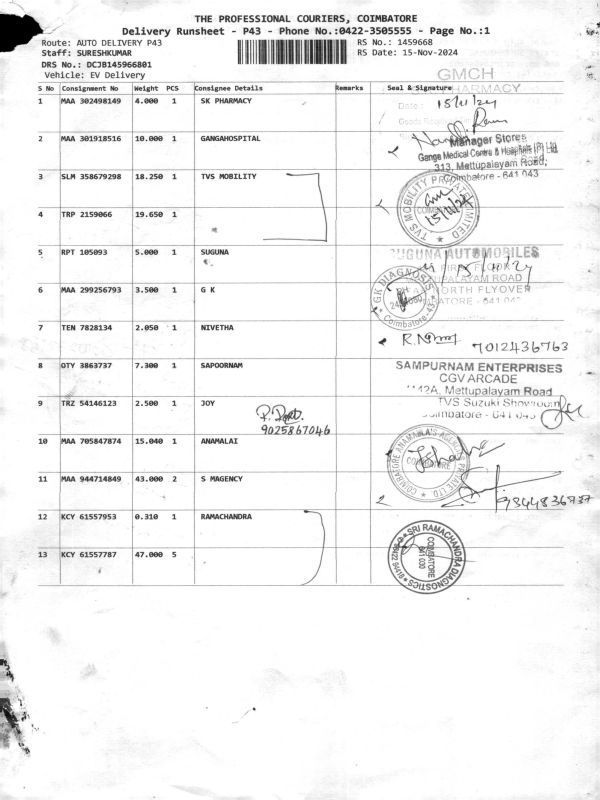 THE PROFESSIONAL COURIERS, COIMBATORE
Delivery Runsheet - P43 - Phone No.:0422-3505555 - Page No.:1
Route: AUTO DELIVERY P43
RS No.: 1459668
Staff: SURESHKUMAR
RS Date: 15-Nov-2024
DRS No.: DCJB145966801
Vehicle: EV Delivery
GMCH
S No Consignment No Weight PCS Consignee Details Remarks Seal & Signature
PHARMACY
1 MAA 302498149 4.000 1 SK PHARMACY
Date: 15/11/24
2 MAA 301918516 10.000 1 GANGAHOSPITAL
Manager Stores
Ganga Medical Centre & Hospitals (P) Ltd
313, Mettupalayam Road,
Coimbatore - 641 043
3 SLM 358679298 18.250 1 TVS MOBILITY
TVS MOBILITY PRIVATE LIMITED
15/11/24
4 TRP 2159066 19.650 1
5 RPT 105093 5.000 1 SUGUNA
SUGUNA AUTOMOBILES
NORTH FLYOVER
6 MAA 299256793 3.500 1 G K
GK DIAGNOSIS
Coimbatore-43
7 TEN 7828134 2.050 1 NIVETHA
7012436763
8 OTY 3863737 7.300 1 SAPOORNAM
SAMPURNAM ENTERPRISES
CGV ARCADE
Mettupalayam Road
TVS Suzuki Showroom
9 TRZ 54146123 2.500 1 JOY
9025867046
10 MAA 705847874 15.040 1 ANAMALAI
COIMBATORE ANAMALAI'S AGENCIES PRIVATE LTD
11 MAA 944714849 43.000 2 S MAGENCY
9844836737
12 KCY 61557953 0.310 1 RAMACHANDRA
SRI RAMACHANDRA DIAGNOSTICS
COIMBATORE
13 KCY 61557787 47.000 5